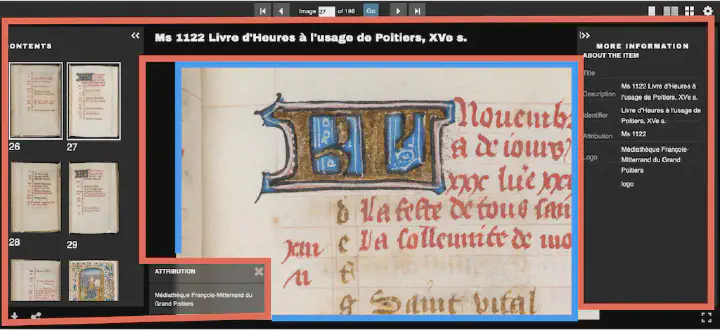 Image 27 of 196 Go
ONTENTS
26
27
28
29
Ms 1122 Livre d'Heures à l'usage de Poitiers, XVe s.
Nouemb
a de iours
xxx lu
d la feste de tous sain
xiii e la sollennite de mo
ii f
g Saint vital
ATTRIBUTION
Médiathèque François-Mitterrand du
Grand Poitiers
MORE INFORMATION
ABOUT THE ITEM
Title
Ms 1122 Livre d'Heures à
Description
l'usage de Poitiers, XVe s.
Livre d'Heures à l'usage de
Identifier
Poitiers, XVe s.
Attribution
Ms 1122
Logo
Médiathèque François-
Mitterrand du Grand
Poitiers
logo